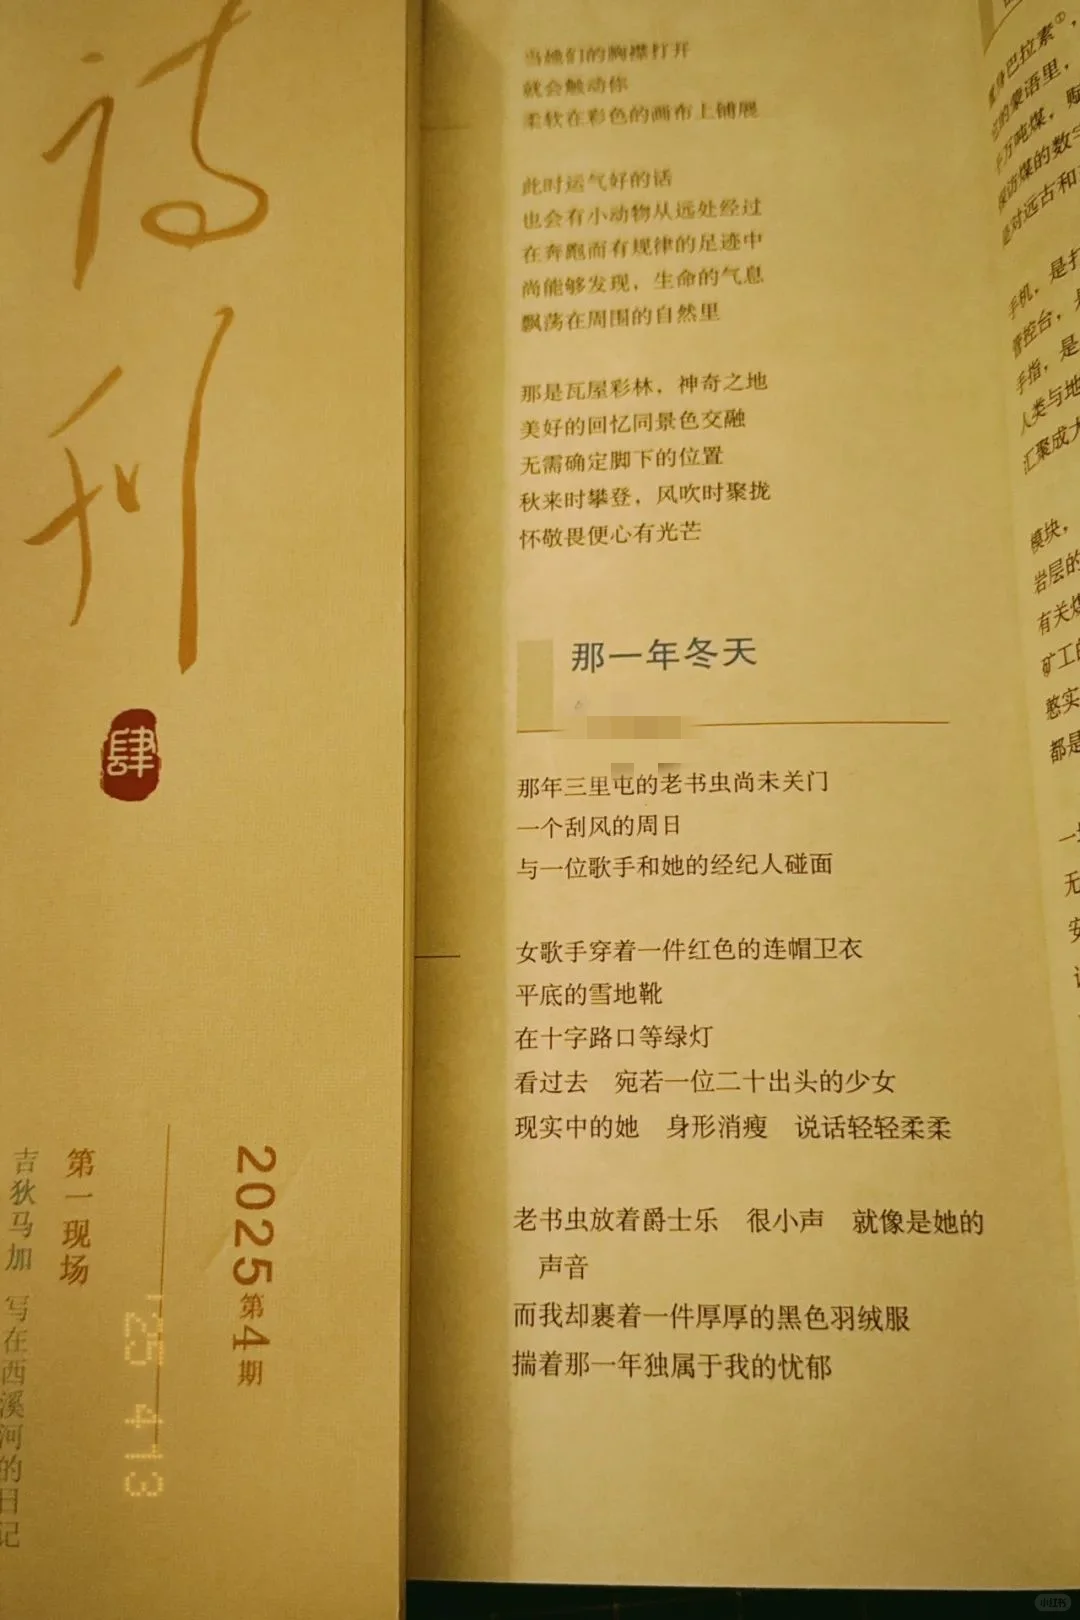 诗刊
肆
2025第4期
第一现场
吉狄马加 写在西溪河的日记
'25 4 13
当她们的胸襟打开
就会触动你
柔软在彩色的画布上铺展
此时运气好的话
也会有小动物从远处经过
在奔跑而有规律的足迹中
尚能够发现，生命的气息
飘荡在周围的自然里
那是瓦屋彩林，神奇之地
美好的回忆同景色交融
无需确定脚下的位置
秋来时攀登，风吹时聚拢
怀敬畏便心有光芒
那一年冬天
那年三里屯的老书虫尚未关门
一个刮风的周日
与一位歌手和她的经纪人碰面
女歌手穿着一件红色的连帽卫衣
平底的雪地靴
在十字路口等绿灯
看过去　宛若一位二十出头的少女
现实中的她　身形消瘦　说话轻轻柔柔
老书虫放着爵士乐　很小声　就像是她的
声音
而我却裹着一件厚厚的黑色羽绒服
揣着那一年独属于我的忧郁
身巴拉素①，
的蒙语里，
十万吨煤，赋
探访煤的数字
是对远古和
手机，是打
管控台，是
手指，是
人类与地
汇聚成大
模块，
岩层的
有关煤
矿工的
憨实
都是
一
无
安
小红书